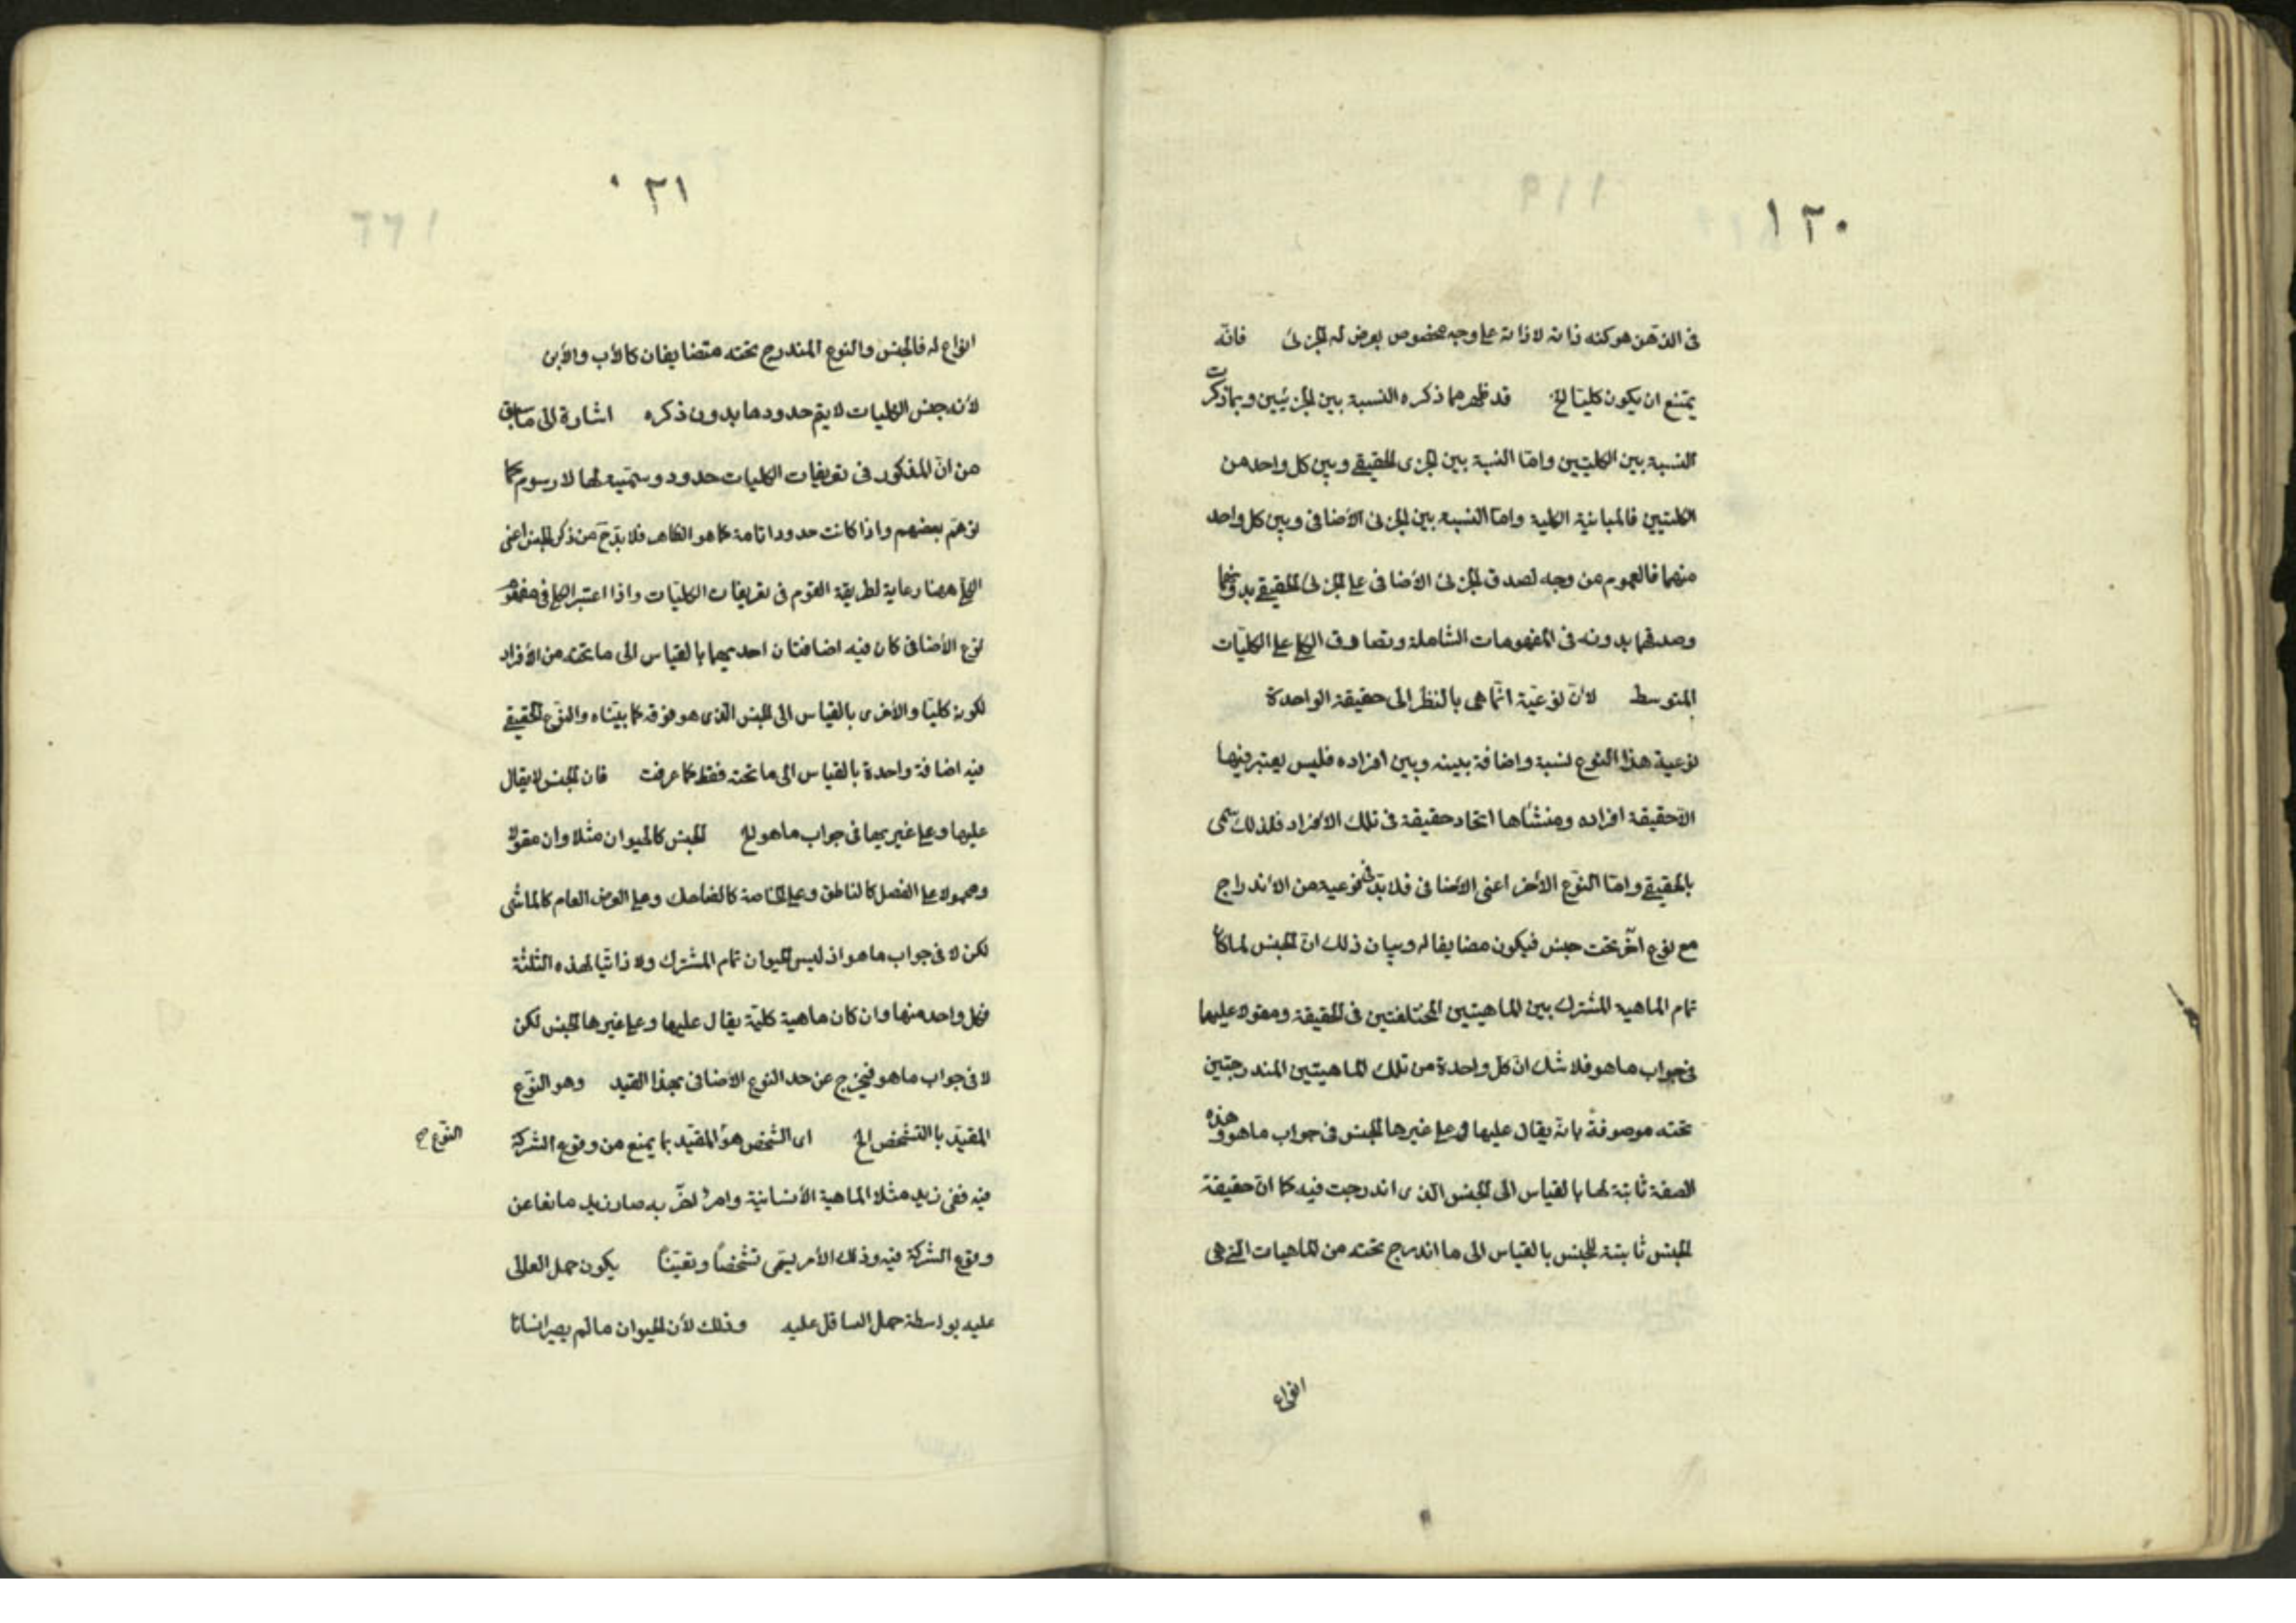 ١٢٠
فى الذهن هو كنه ذاته لا ذاته على وجه مخصوص يعرض له الجزئى فانّه
يمتنع ان يكون كليّا الخ قد ظهر مما ذكره النسبة بين الجزئيين وبما ذكرت
النسبة بين الكليتين وامّا النسبة بين الجزى الحقيقى وبين كل واحد من
الكليتين فالمباينة الكلية وامّا النسبة بين الجزئى الأضافى وبين كل واحد
منهما فالعموم من وجه لصدق الجزئى الأضافى على الجزئى الحقيقى بدونهما
وصدقهما بدونه فى المفهومات الشاملة وتصادق الكل على الكليّات
المتوسط لانّ نوعيّة انّما هى بالنظر الى حقيقة الواحدة
نوعية هذا النوع نسبة واضافة بينه وبين افراده فليس يعتبر فيها
الّا حقيقة افراده ومنشأها اتحاد حقيقة فى تلك الافراد فلذلك سمى
بالحقيقى وامّا النوّع الأخر اعنى الأضافى فلا بدّ فى نوعية من الأندراج
مع نوع آخر تحت جنس فيكون مضايفا له وبيان ذلك انّ الجنس لما كان
تمام الماهية المشترك بين الماهيتين المختلفتين فى الحقيقة ومقولا عليهما
فى جواب ما هو فلا شك انّ كل واحدة من تلك الماهيتين المندرجتين
تحته موصوفة بانّه يقال عليها وعلى غيرها الجنس فى جواب ما هو وهذه
الصفة ثابتة لها بالقياس الى الجنس الذى اندرجت فيه كما انّ حقيقة
الجنس ثابتة للجنس بالقياس الى ما اندرج تحته من الماهيات التى هى
انواع
١٢١
انواع له فالجنس والنوع المندرج تحته متضايفان كالأب والأبن
لأنه جنس الكليات لا يتم حدودها بدون ذكره اشارة الى ما سبق
من انّ المذكور فى تعريفات الكليات حدود وسمّيه لها لا رسوم كما
توهّم بعضهم واذا كانت حدودا تامة كما هو الظاهر فلا بدّ ح من ذكر الجنس اعنى
الكلى ههنا رعاية لطريقة القوم فى تعريفات الكليّات واذا اعتبر الكلى فى مفهوم
نوع الأضافى كان فيه اضافتان احديهما بالقياس الى ما تحته من الأفراد
لكونه كليّا والأخرى بالقياس الى الجنس الذى هو فوقه كما بيّناه والنوّع الحقيقى
فيه اضافة واحدة بالقياس الى ما تحته فقط كما عرفت فان الجنس لا يقال
عليها وعلى غيريها فى جواب ما هو الخ الجنس كالحيوان مثلا وان مقولا
ومحمولا على الفصل كالناطق وعلى الخاصة كالضاحك وعلى العرض العام كالماشى
لكن لا فى جواب ما هو اذ ليس الحيوان تمام المشترك ولا ذاتيّا لهذه الثلثة
فكل واحد منها وان كان ماهية كليّة يقال عليها وعلى غيرها الجنس لكن
لا فى جواب ما هو فيخرج عن حد النوع الأضافى بهذا القيد وهو النوّع
المقيّد بالتشخص الخ اى الشخص هو المقيّد بما يمنع من وقوع الشركة
النوّع صح
فيه ففى زيد مثلا الماهية الأنسانية وامر آخر به صار زيد مانعا عن
وقوع الشركة فيه وذلك الأمر يسمّى تشخصًا وتعيّنًا يكون حمل العالى
عليه بواسطة حمل السافل عليه وذلك لأن الحيوان ما لم يصير انسانا